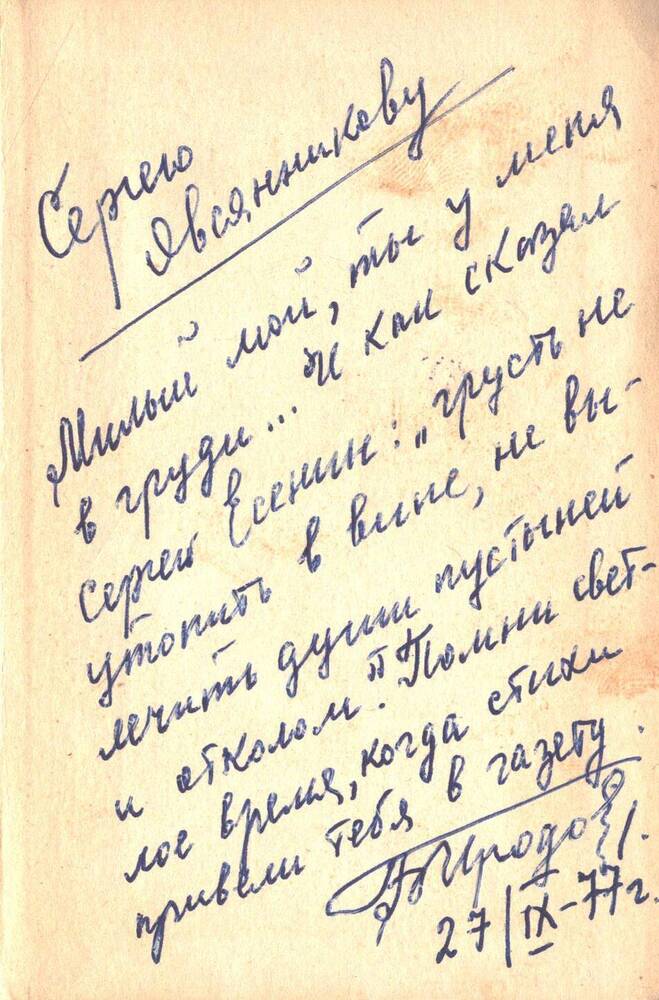 Сергею
Явсянникову
Милый мой, ты у меня
в груди... И как сказал
Сергей Есенин: „грусть не
утопить в вине, не вы-
лечить души пустыней
и отколом". Помни свет-
лое время, когда стихи
привели тебя в газету.
27/IX-77 г.